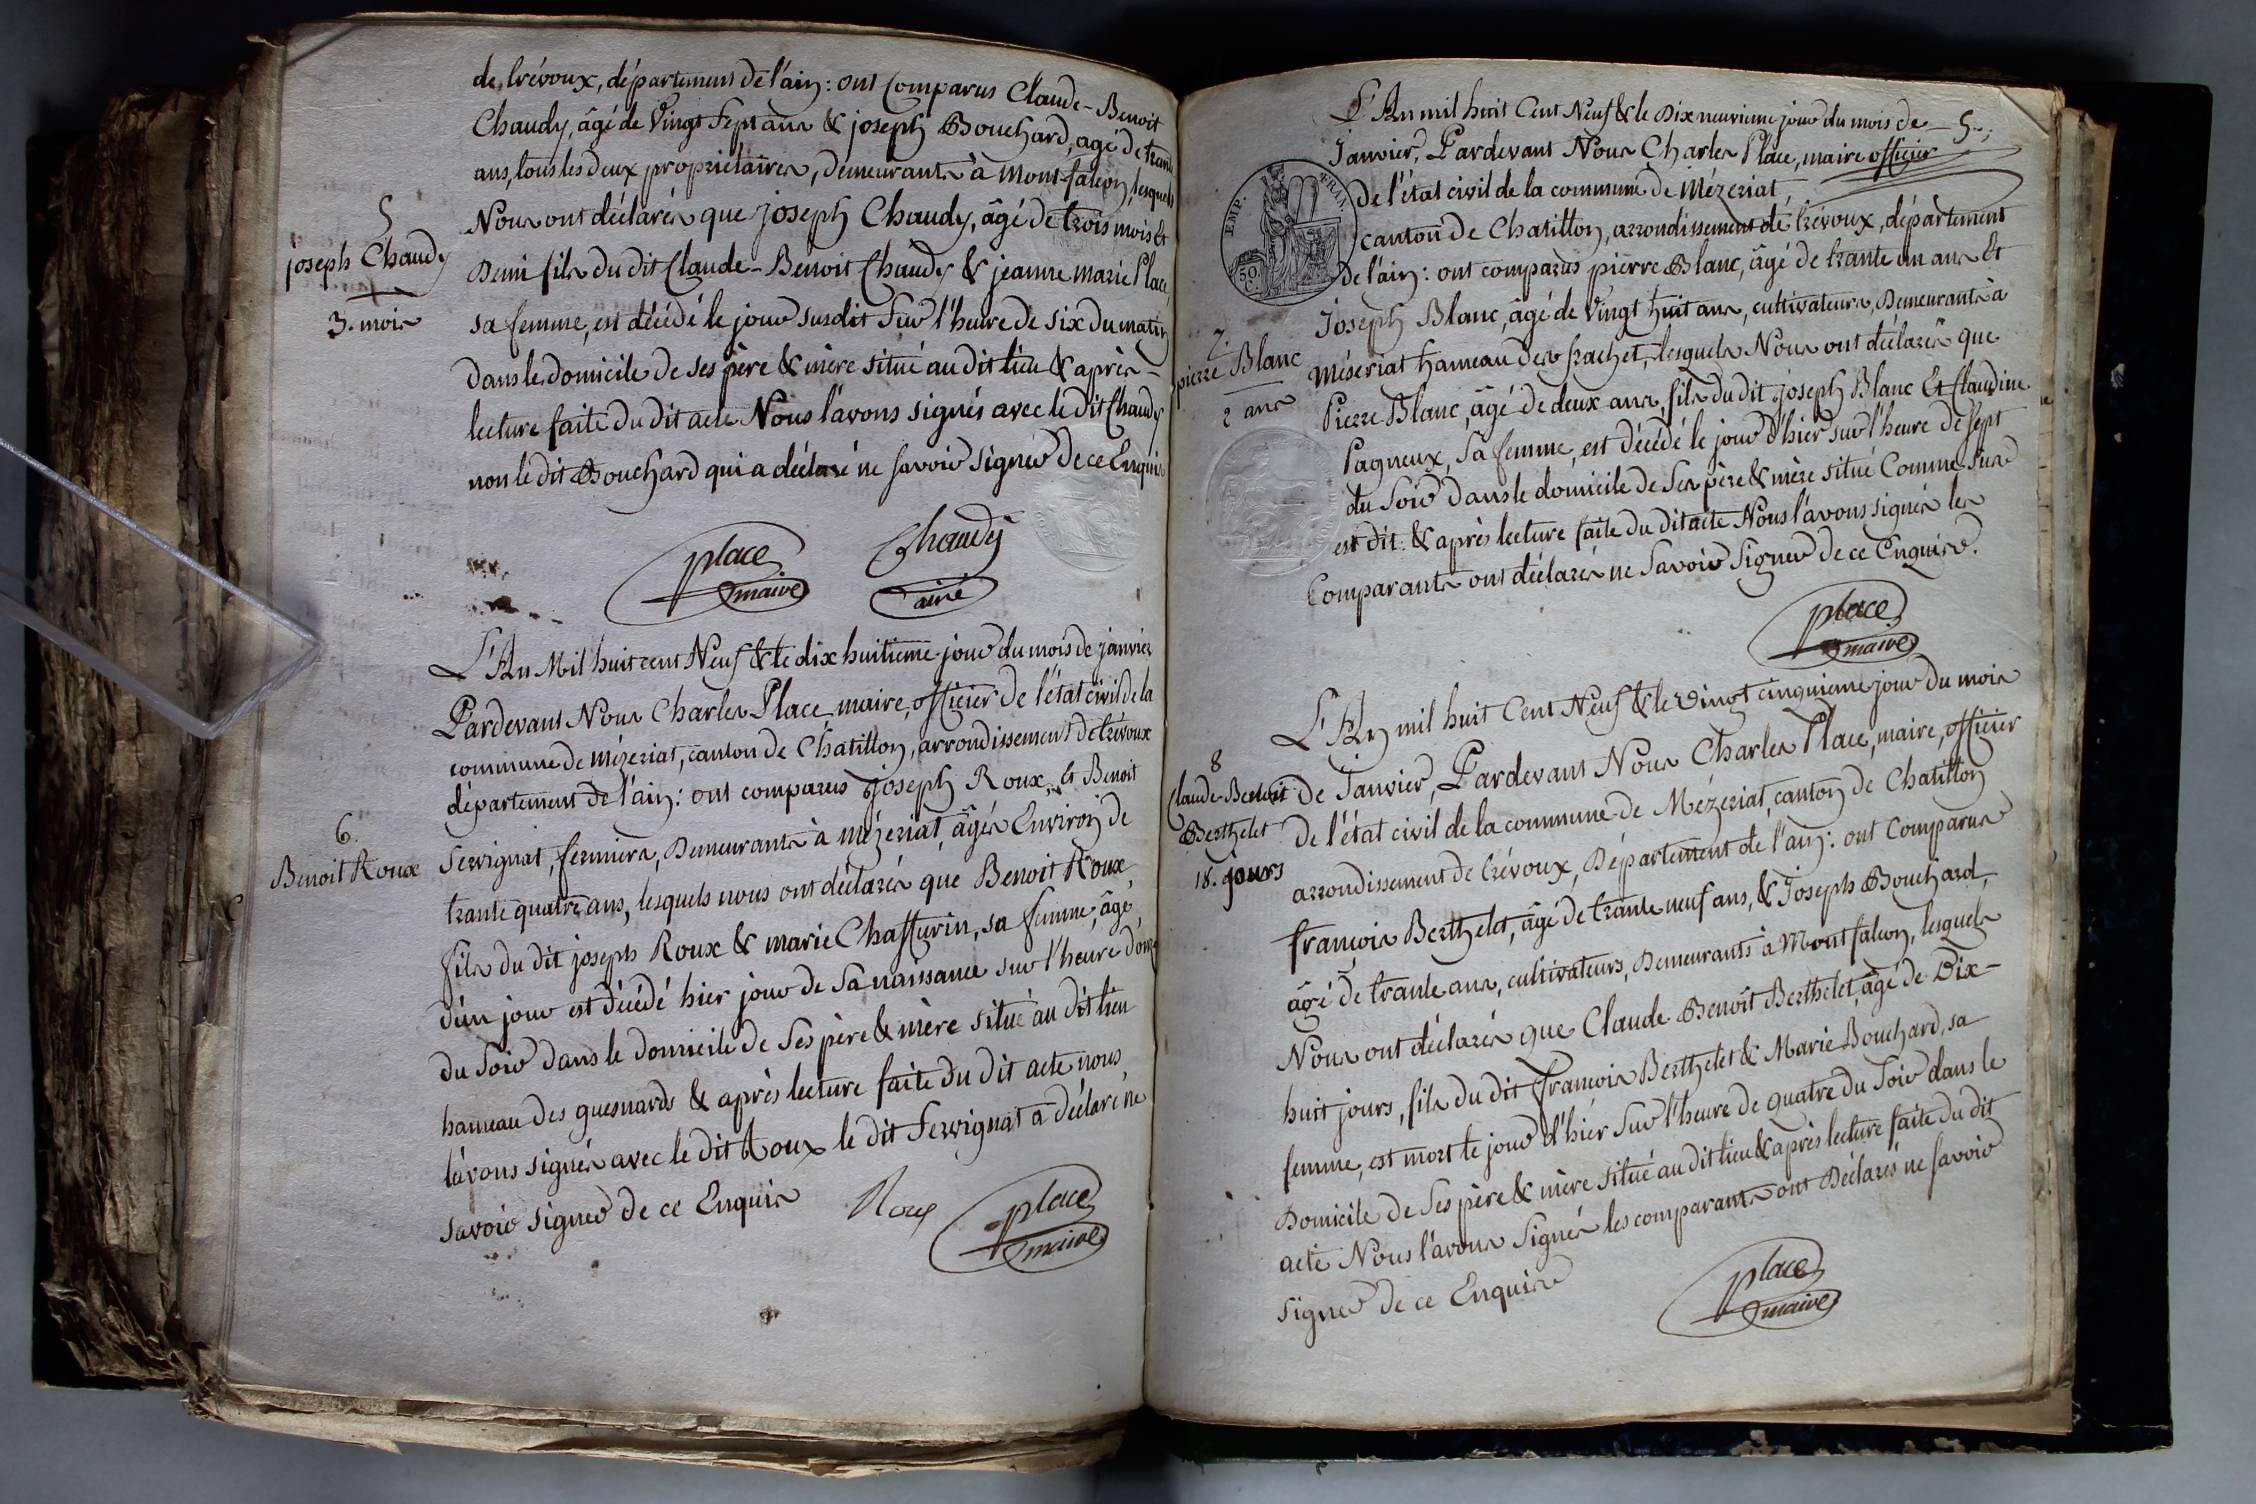 de trévoux, département de l'ain: ont Comparus Claude-Benoit
Chaudy, âgé de Vingt Sept ans & joseph Bouchard, agé de trante
ans, tous les deux propriétaires, demeurants à Montfalcon, lesquels
5
joseph Chaudy
3. mois
Nous ont déclarés que joseph Chaudy, âgé de trois mois et
Demi fils du dit Claude-Benoit Chaudy & jeanne marie Place,
sa femme, est décédé le jour susdit sur l'heure de six du matin
dans le domicile de ses père & mère situé au dit lieu & après
lecture faite du dit acte Nous l'avons signés avec le dit Chaudy
non le dit Bouchard qui a déclaré ne savoir signer de ce Enquis
place
maire
Chaudy
ainé
L'An Mil huit cent Neuf & le dix huitieme jour du mois de janvier
Pardevant Nous Charles Place maire, officier de l'état civil de la
commune de mézeriat, canton de Chatillon, arrondissement de trévoux
département de l'ain: ont comparus joseph Roux, et Benoit
6.
Benoit Roux
Servignat, fermiers, Demeurants à mézeriat, âgés Environ de
trante quatre ans, lesquels nous ont déclarés que Benoit Roux
fils du dit joseph Roux & marie Chaffurin, sa femme, âgé
d'un jour est décédé hier jour de sa naissance sur l'heure d'onze
du Soir dans le domicile de Ses père & mère situé au dit lieu
hameau des guesnards & après lecture faite du dit acte nous
l'avons signés avec le dit Roux le dit Servignat a déclaré ne
savoir signer de ce Enquis
Roux
place
maire
L'An mil huit Cent Neuf & le Dix neuvieme jour du mois de 5.
Janvier, Pardevant Nous Charles Place, maire officier
EMP. FRAN.
50 C.
de l'état civil de la commune de Mézeriat,
canton de Chatillon, arrondissement de trévoux, département
de l'ain: ont comparus pierre Blanc, âgé de trante un ans et
Joseph Blanc, âgé de Vingt huit ans, cultivateurs, Demeurants à
7.
pierre Blanc
2 ans
Méseriat hameau des frachet, lesquels Nous ont déclarés que
Pierre Blanc, âgé de deux ans, fils du dit joseph Blanc Et Claudine
Pagneux, Sa femme, est décédé le jour d'hier sur l'heure de sept
du Soir dans le domicile de Ses père & mère situé Comme Sus
est dit. & après lecture faite du dit acte Nous l'avons signés les
Comparants ont déclarés ne Savoir Signer de ce Enquis.
place
maire
L'An mil huit Cent Neuf & le vingt cinquieme jour du mois
8
Claude-Benoit
Berthelet
18. jours
de Janvier, Pardevant Nous Charles Place, maire, officier
de l'état civil de la commune de Mézeriat, canton de Chatillon
arrondissement de trévoux, Département de l'ain: ont Comparus
françois Berthelet, âgé de trante neuf ans, & Joseph Bouchard,
âgé de trante ans, cultivateurs, Demeurants à Montfalcon, lesquels
Nous ont déclarés que Claude Benoit Berthelet, âgé de Dix-
huit jours, fils du dit françois Berthelet & Marie Bouchard, sa
femme, est mort le jour d'hier Sur l'heure de quatre du Soir dans le
Domicile de Ses père & mère situé au dit lieu & après lecture faite du dit
acte Nous l'avons Signés les comparants ont Déclarés ne savoir
signer de ce Enquis
place
maire